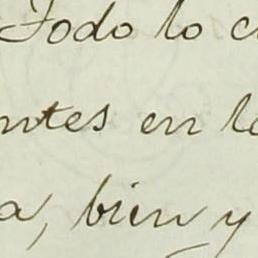 Todo lo c
ntes en l
a, bien y